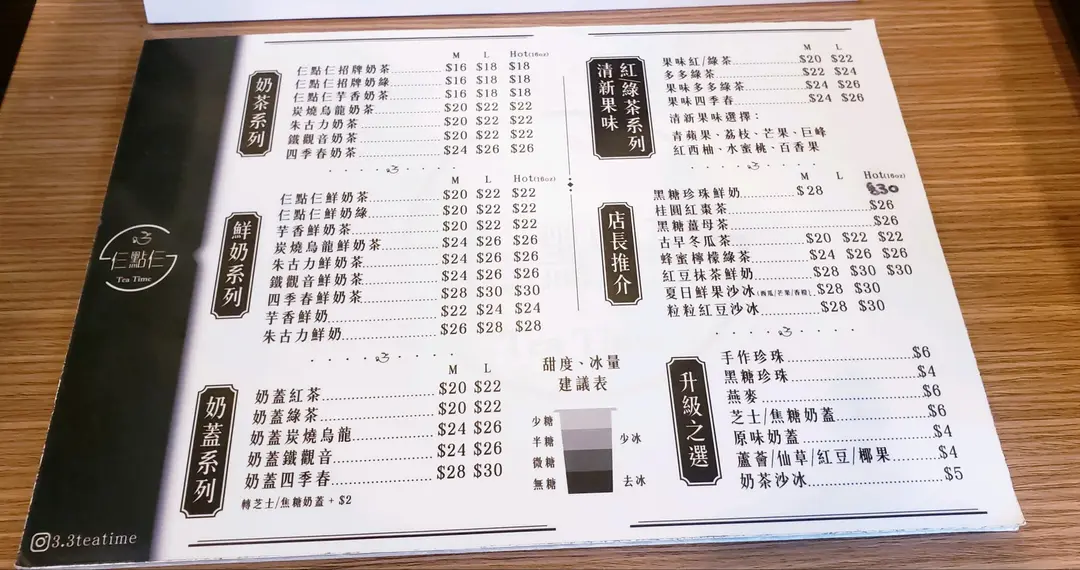 仨點仨
Tea Time
3.3teatime
奶茶系列
M L Hot(16oz)
仨點仨招牌奶茶 $16 $18 $18
仨點仨招牌奶綠 $16 $18 $18
仨點仨芋香奶茶 $16 $18 $18
炭燒烏龍奶茶 $20 $22 $22
朱古力奶茶 $20 $22 $22
鐵觀音奶茶 $20 $22 $22
四季春奶茶 $24 $26 $26
鮮奶系列
M L Hot(16oz)
仨點仨鮮奶茶 $20 $22 $22
仨點仨鮮奶綠 $20 $22 $22
芋香鮮奶茶 $20 $22 $22
炭燒烏龍鮮奶茶 $24 $26 $26
朱古力鮮奶茶 $24 $26 $26
鐵觀音鮮奶茶 $24 $26 $26
四季春鮮奶茶 $28 $30 $30
芋香鮮奶 $22 $24 $24
朱古力鮮奶 $26 $28 $28
奶蓋系列
M L
奶蓋紅茶 $20 $22
奶蓋綠茶 $20 $22
奶蓋炭燒烏龍 $24 $26
奶蓋鐵觀音 $24 $26
奶蓋四季春 $28 $30
轉芝士/焦糖奶蓋 + $2
甜度、冰量
建議表
少糖
半糖 少冰
微糖
無糖 去冰
紅/綠茶系列
清新果味
M L
果味紅/綠茶 $20 $22
多多綠茶 $22 $24
果味多多綠茶 $24 $26
果味四季春 $24 $26
清新果味選擇：
青蘋果、荔枝、芒果、巨峰
紅西柚、水蜜桃、百香果
店長推介
M L Hot(16oz)
黑糖珍珠鮮奶 $28 $30
桂圓紅棗茶 $26
黑糖薑母茶 $26
古早冬瓜茶 $20 $22 $22
蜂蜜檸檬綠茶 $24 $26 $26
紅豆抹茶鮮奶 $28 $30 $30
夏日鮮果沙冰(西瓜/芒果/香粽) $28 $30
粒粒紅豆沙冰 $28 $30
升級之選
手作珍珠 $6
黑糖珍珠 $4
燕麥 $6
芝士/焦糖奶蓋 $6
原味奶蓋 $4
蘆薈/仙草/紅豆/椰果 $4
奶茶沙冰 $5